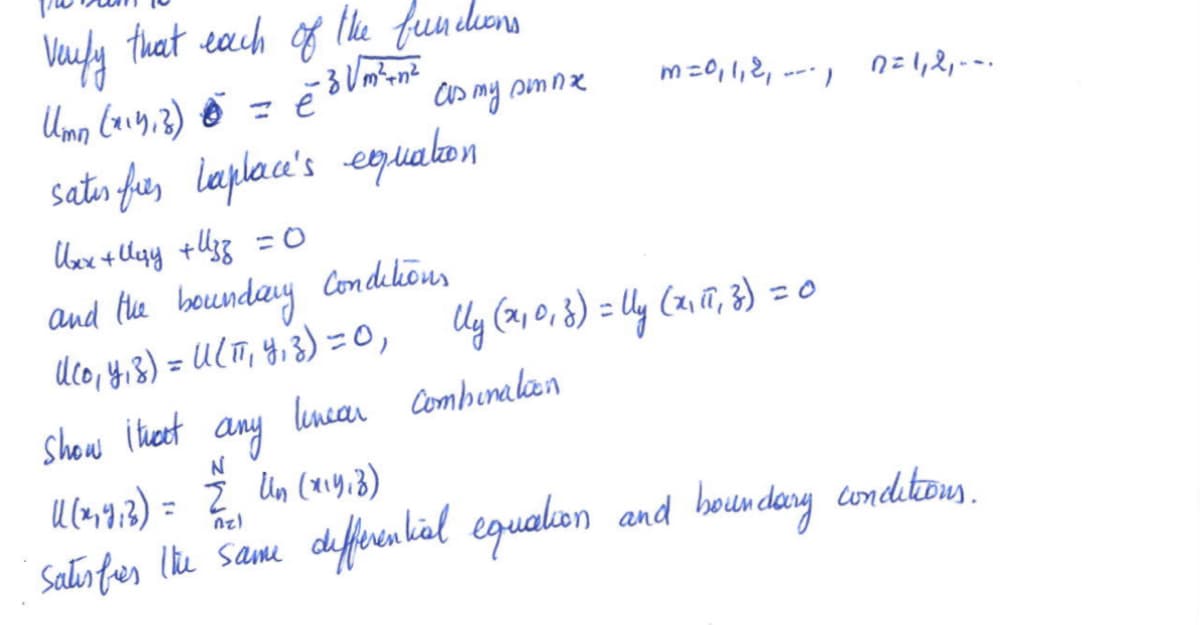 Verify that each of the functions
Umn (x,y,z) = e^{-z√(m²+n²)} cos my sin nx m=0,1,2, ...., n=1,2,...
satisfies Laplace's equation
Uxx + Uyy + Uzz = 0
and the boundary conditions
U(0,y,z) = U(π, y,z) = 0, Uy (x,0,z) = Uy (x,π,z) = 0
Show that any linear combination
U(x,y,z) = Σ_{n=1}^{N} Un (x,y,z)
Satisfies the same differential equation and boundary conditions.